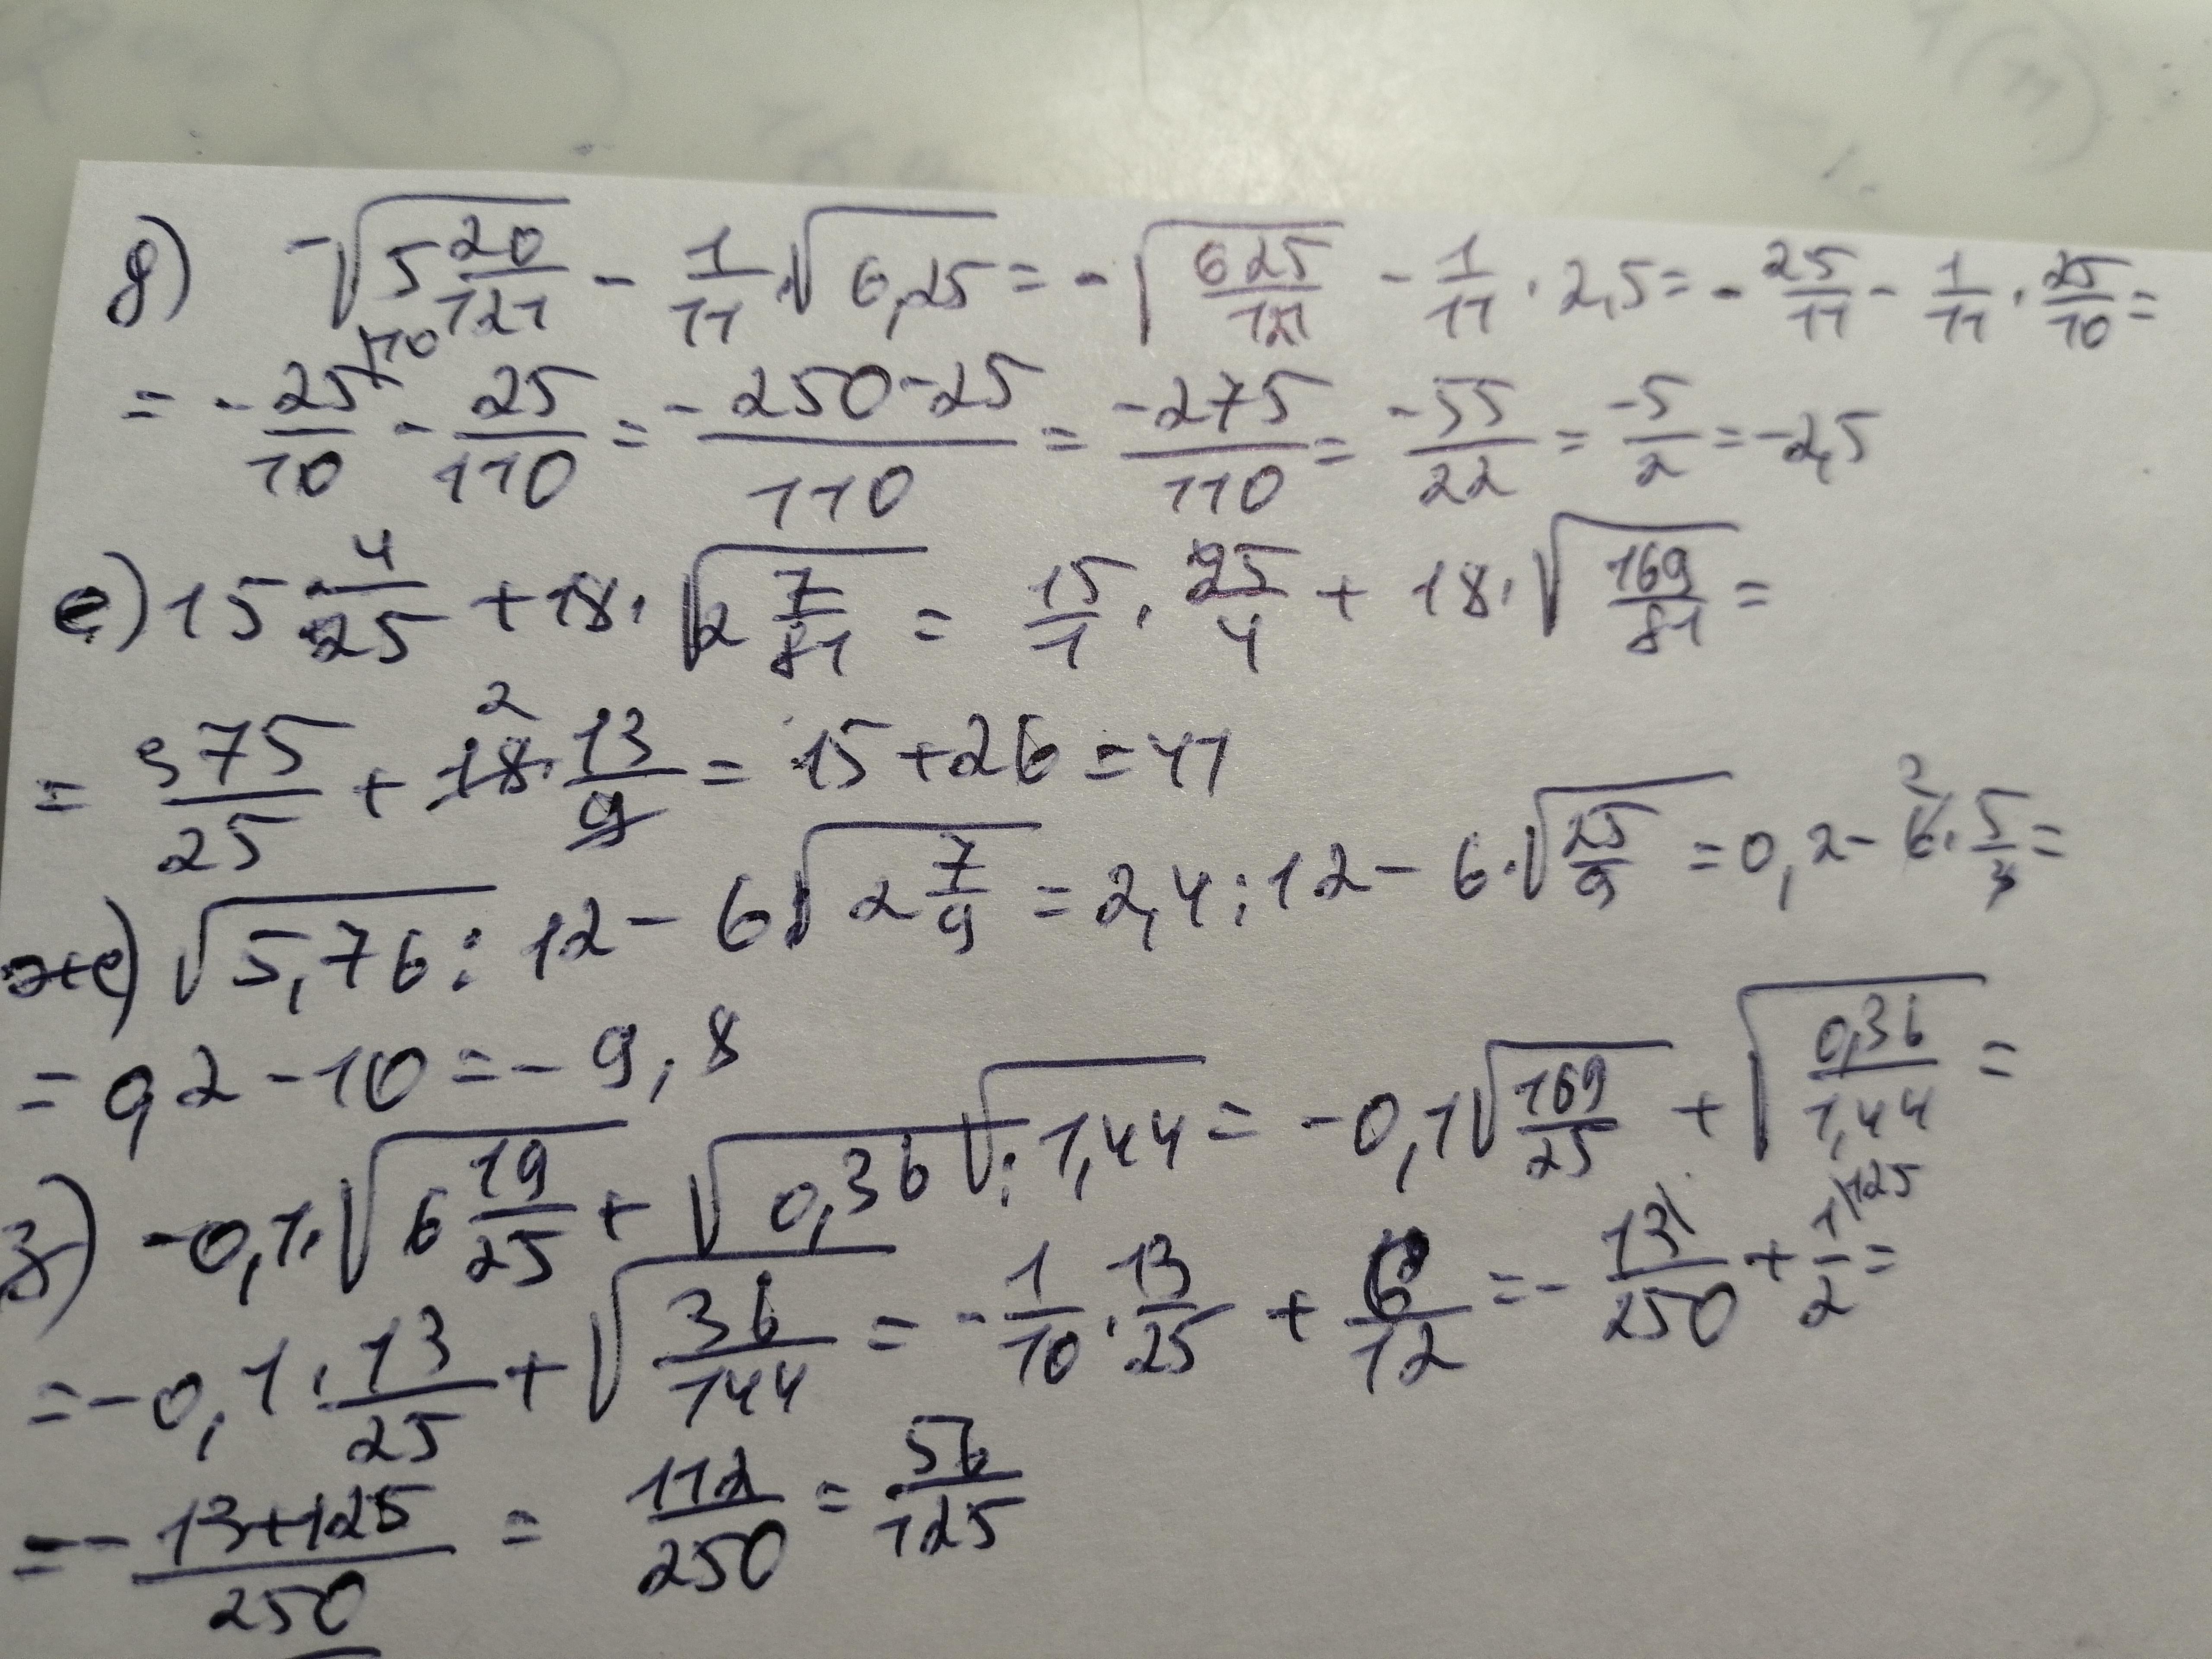 д) -√(5 20/121) - 1/11·√6,25 = -√(625/121) - 1/11 · 2,5 = -25/11 - 1/11 · 25/10 =
= -25\10/10 - 25/110 = -(250-25)/110 = -275/110 = -55/22 = -5/2 = -2,5
е) 15 4/25 + 18·√(2 7/81) = 15/1 · 25/4 + 18·√(169/81) =
= 375/25 + 18 2 · 13/9 = 15+26=41
же) √5,76 : 12 - 6√(2 7/9) = 2,4:12 - 6·√(25/9) = 0,2 - 6 2 · 5/3 =
= 0,2 - 10 = -9,8
з) -0,1·√(6 19/25) + √0,36 : √1,44 = -0,1√(169/25) + √(0,36/1,44) =
= -0,1·13/25 + √(36/144) = -1/10 · 13/25 + 6/12 = -13\/250 + 1\125/2 =
= -(13+125)/250 = 112/250 = 56/125